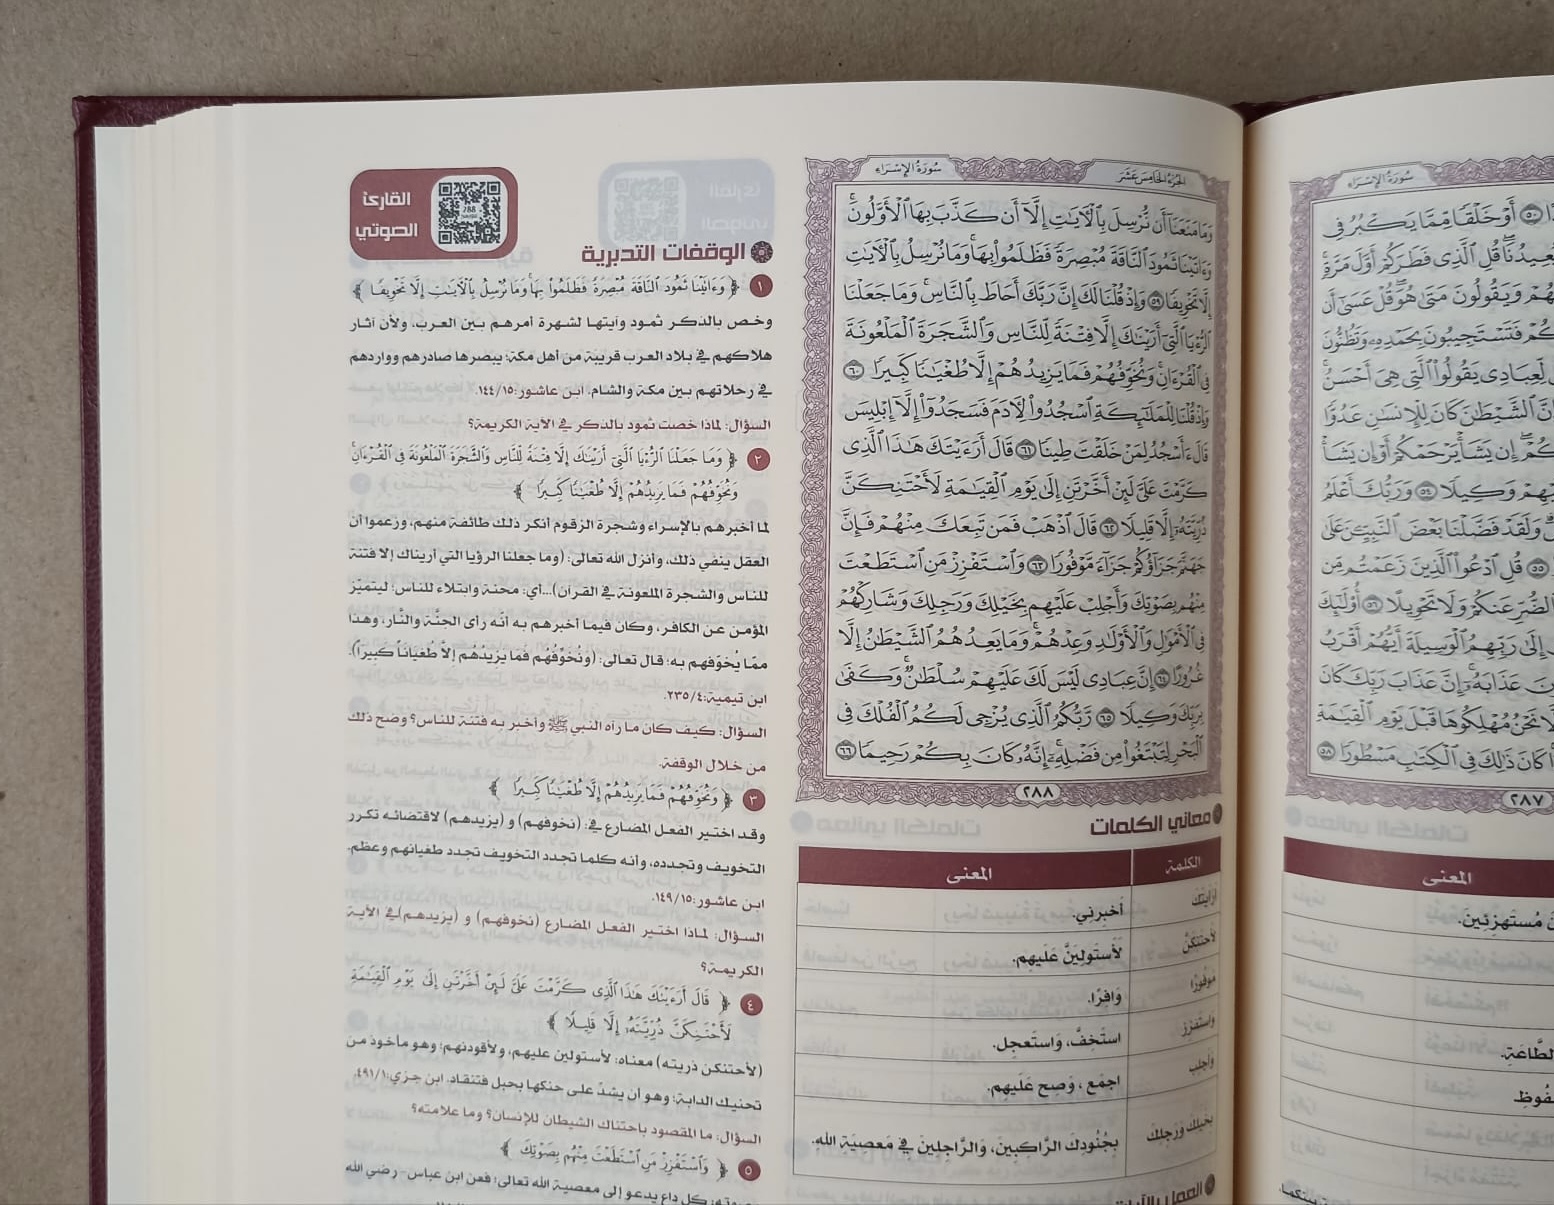 سُورَةُ الإِسْرَاءِ
الجُزْءُ الخَامِسَ عَشَرَ
وَمَا مَنَعَنَآ أَن نُّرْسِلَ بِٱلْأٓيَٰتِ إِلَّآ أَن كَذَّبَ بِهَا ٱلْأَوَّلُونَۚ
وَءَاتَيْنَا ثَمُودَ ٱلنَّاقَةَ مُبْصِرَةً فَظَلَمُوا۟ بِهَاۚ وَمَا نُرْسِلُ بِٱلْأٓيَٰتِ
إِلَّا تَخْوِيفًا ٥٩ وَإِذْ قُلْنَا لَكَ إِنَّ رَبَّكَ أَحَاطَ بِٱلنَّاسِۚ وَمَا جَعَلْنَا
ٱلرُّءْيَا ٱلَّتِىٓ أَرَيْنَٰكَ إِلَّا فِتْنَةً لِّلنَّاسِ وَٱلشَّجَرَةَ ٱلْمَلْعُونَةَ
فِى ٱلْقُرْءَانِۚ وَنُخَوِّفُهُمْ فَمَا يَزِيدُهُمْ إِلَّا طُغْيَٰنًا كَبِيرًا ٦٠
وَإِذْ قُلْنَا لِلْمَلَٰٓئِكَةِ ٱسْجُدُوا۟ لِأٓدَمَ فَسَجَدُوٓا۟ إِلَّآ إِبْلِيسَ
قَالَ ءَأَسْجُدُ لِمَنْ خَلَقْتَ طِينًا ٦١ قَالَ أَرَءَيْتَكَ هَٰذَا ٱلَّذِى
كَرَّمْتَ عَلَىَّ لَئِنْ أَخَّرْتَنِ إِلَىٰ يَوْمِ ٱلْقِيَٰمَةِ لَأَحْتَنِكَنَّ
ذُرِّيَّتَهُۥٓ إِلَّا قَلِيلًا ٦٢ قَالَ ٱذْهَبْ فَمَن تَبِعَكَ مِنْهُمْ فَإِنَّ
جَهَنَّمَ جَزَآؤُكُمْ جَزَآءً مَّوْفُورًا ٦٣ وَٱسْتَفْزِزْ مَنِ ٱسْتَطَعْتَ
مِنْهُم بِصَوْتِكَ وَأَجْلِبْ عَلَيْهِم بِخَيْلِكَ وَرَجِلِكَ وَشَارِكْهُمْ
فِى ٱلْأَمْوَٰلِ وَٱلْأَوْلَٰدِ وَعِدْهُمْۚ وَمَا يَعِدُهُمُ ٱلشَّيْطَٰنُ إِلَّا
غُرُورًا ٦٤ إِنَّ عِبَادِى لَيْسَ لَكَ عَلَيْهِمْ سُلْطَٰنٌۚ وَكَفَىٰ
بِرَبِّكَ وَكِيلًا ٦٥ رَّبُّكُمُ ٱلَّذِى يُزْجِى لَكُمُ ٱلْفُلْكَ فِى
ٱلْبَحْرِ لِتَبْتَغُوا۟ مِن فَضْلِهِۦٓۚ إِنَّهُۥ كَانَ بِكُمْ رَحِيمًا ٦٦
٢٨٨
معاني الكلمات
الكلمة المعنى
أَرَأَيْتَكَ أخبرني.
لَأَحْتَنِكَنَّ لأستولينَّ عليهم.
مَوْفُورًا وَافِرًا.
وَاسْتَفْزِزْ استَخِفَّ، وَاستَعجِل.
وَأَجْلِبْ اجمَع، وَصِح عَلَيهم.
بِخَيْلِكَ وَرَجِلِكَ بِجُنُودِكَ الرَّاكِبينَ، وَالرَّاجِلِينَ فِي مَعصِيَةِ اللهِ.
العمل بالآيات
القارئ
الصوتي
288
الوقفات التدبرية
١ ﴿ وَءَاتَيْنَا ثَمُودَ ٱلنَّاقَةَ مُبْصِرَةً فَظَلَمُوا۟ بِهَا وَمَا نُرْسِلُ بِٱلْأٓيَٰتِ إِلَّا تَخْوِيفًا ﴾
وخص بالذكر ثمود وآيتها لشهرة أمرهم بين العرب، ولأن آثار
هلاكهم في بلاد العرب قريبة من أهل مكة؛ يبصرها صادرهم وواردهم
في رحلاتهم بين مكة والشام. ابن عاشور:١٤٤/١٥.
السؤال: لماذا خصت ثمود بالذكر في الآية الكريمة؟
٢ ﴿ وَمَا جَعَلْنَا ٱلرُّءْيَا ٱلَّتِىٓ أَرَيْنَٰكَ إِلَّا فِتْنَةً لِّلنَّاسِ وَٱلشَّجَرَةَ ٱلْمَلْعُونَةَ فِى ٱلْقُرْءَانِ
وَنُخَوِّفُهُمْ فَمَا يَزِيدُهُمْ إِلَّا طُغْيَٰنًا كَبِيرًا ﴾
لما أخبرهم بالإسراء وشجرة الزقوم أنكر ذلك طائفة منهم، وزعموا أن
العقل ينفي ذلك، وأنزل الله تعالى: (وما جعلنا الرؤيا التي أريناك إلا فتنة
للناس والشجرة الملعونة في القرآن)...أي: محنة وابتلاء للناس؛ ليتميّز
المؤمن عن الكافر، وكان فيما أخبرهم به أنه رأى الجنَّة والنَّار، وهذا
ممّا يُخوّفهم به؛ قال تعالى: (وَنُخَوِّفُهُم فَمَا يَزِيدُهُم إلاَّ طُغيَاناً كَبِيراً).
ابن تيمية:٢٣٥/٤.
السؤال: كيف كان ما رآه النبي ﷺ وأخبر به فتنة للناس؟ وضح ذلك
من خلال الوقفة.
٣ ﴿ وَنُخَوِّفُهُمْ فَمَا يَزِيدُهُمْ إِلَّا طُغْيَٰنًا كَبِيرًا ﴾
وقد اختير الفعل المضارع في: (نخوفهم) و (يزيدهم) لاقتضائه تكرر
التخويف وتجدده، وأنه كلما تجدد التخويف تجدد طغيانهم وعظم.
ابن عاشور:١٤٩/١٥.
السؤال: لماذا اختير الفعل المضارع (نخوفهم) و (يزيدهم)في الآية
الكريمة؟
٤ ﴿ قَالَ أَرَءَيْتَكَ هَٰذَا ٱلَّذِى كَرَّمْتَ عَلَىَّ لَئِنْ أَخَّرْتَنِ إِلَىٰ يَوْمِ ٱلْقِيَٰمَةِ
لَأَحْتَنِكَنَّ ذُرِّيَّتَهُۥٓ إِلَّا قَلِيلًا ﴾
(لأحتنكن ذريته) معناه: لأستولين عليهم، ولأقودنهم؛ وهو مأخوذ من
تحنيك الدابة؛ وهو أن يشدّ على حنكها بحبل فتنقاد. ابن جزي:٤٩١/١.
السؤال: ما المقصود باحتناك الشيطان للإنسان؟ وما علامته؟
٥ ﴿ وَٱسْتَفْزِزْ مَنِ ٱسْتَطَعْتَ مِنْهُم بِصَوْتِكَ ﴾
كل داع يدعو إلى معصية الله تعالى؛ فعن ابن عباس- رضي الله
سُورَةُ الإِسْرَاءِ
٥٠ أَوْ خَلْقًا مِّمَّا يَكْبُرُ فِى
يُعِيدُنَا قُلِ ٱلَّذِى فَطَرَكُمْ أَوَّلَ مَرَّةٍ
وَيَقُولُونَ مَتَىٰ هُوَ قُلْ عَسَىٰٓ أَن
فَتَسْتَجِيبُونَ بِحَمْدِهِۦ وَتَظُنُّونَ
لِّعِبَادِى يَقُولُوا۟ ٱلَّتِى هِىَ أَحْسَنُ
ٱلشَّيْطَٰنَ كَانَ لِلْإِنسَٰنِ عَدُوًّا
إِن يَشَأْ يَرْحَمْكُمْ أَوْ إِن يَشَأْ
وَكِيلًا ٥٤ وَرَبُّكَ أَعْلَمُ
وَلَقَدْ فَضَّلْنَا بَعْضَ ٱلنَّبِيِّـۧنَ عَلَىٰ
٥٥ قُلِ ٱدْعُوا۟ ٱلَّذِينَ زَعَمْتُم مِّن
ٱلضُّرِّ عَنكُمْ وَلَا تَحْوِيلًا ٥٦ أُو۟لَٰٓئِكَ
إِلَىٰ رَبِّهِمُ ٱلْوَسِيلَةَ أَيُّهُمْ أَقْرَبُ
عَذَابَهُۥٓ إِنَّ عَذَابَ رَبِّكَ كَانَ
نَحْنُ مُهْلِكُوهَا قَبْلَ يَوْمِ ٱلْقِيَٰمَةِ
كَانَ ذَٰلِكَ فِى ٱلْكِتَٰبِ مَسْطُورًا ٥٨
٢٨٧
المعنى
مُستَهزِئِينَ.
الطَّاعَةِ.